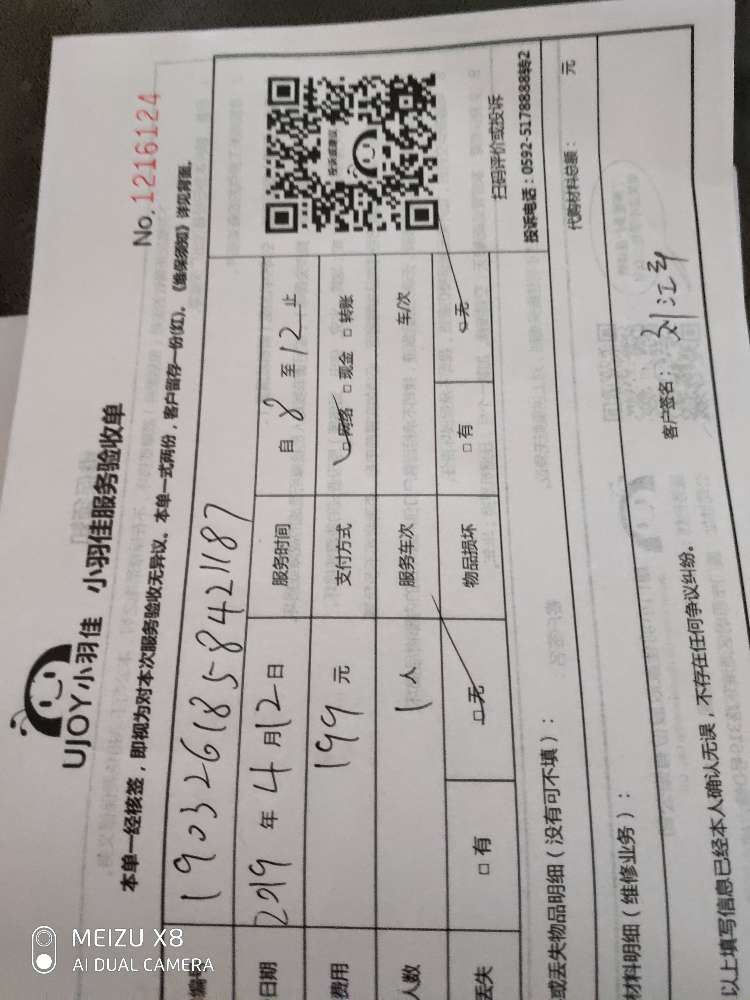 UJOY小羽佳 小羽佳服务验收单
No.1216124
本单一经核签，即视为对本次服务验收无异议。本单一式两份，客户留存一份(红)。《维保须知》详见背面。
编号 1903261858421187
日期 2019 年 4 月 12 日 服务时间 自 8 至 12 止
费用 199 元 支付方式 网络 □ 现金 □ 转账
人数 1 人 服务车次 车/次
丢失 □ 有 □ 无 物品损坏 □ 有 □ 无
投诉或建议
扫码评价或投诉
投诉电话：0592-5178888转2
或丢失物品明细（没有可不填）：
材料明细（维修业务）：
代购材料总额： 元
以上填写信息已经本人确认无误，不存在任何争议纠纷。
客户签名：
MEIZU X8
AI DUAL CAMERA